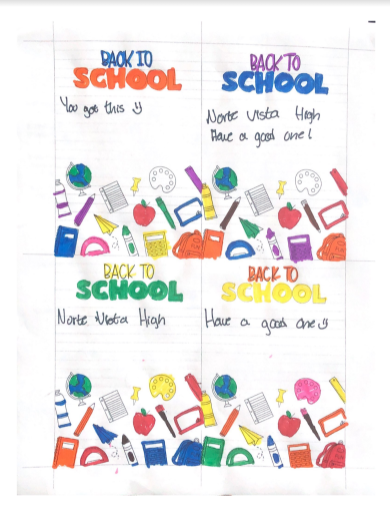 BACK TO
SCHOOL
You got this
BACK TO
SCHOOL
Norte Vista High
Have a good one!
BACK TO
SCHOOL
Norte Vista High
BACK TO
SCHOOL
Have a good one